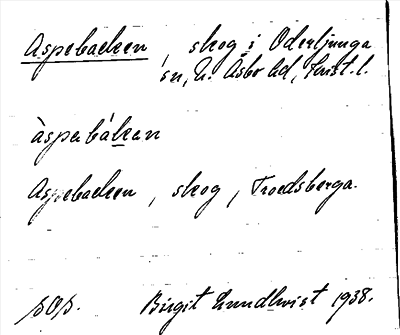 Aspebacken, skog i Oderljunga
sn, N. Åsbo hd, Krist. l.
àsperbákan
Aspebacken, skog, Troedsberga.
sOs.
Birgit Lundkvist 1938.